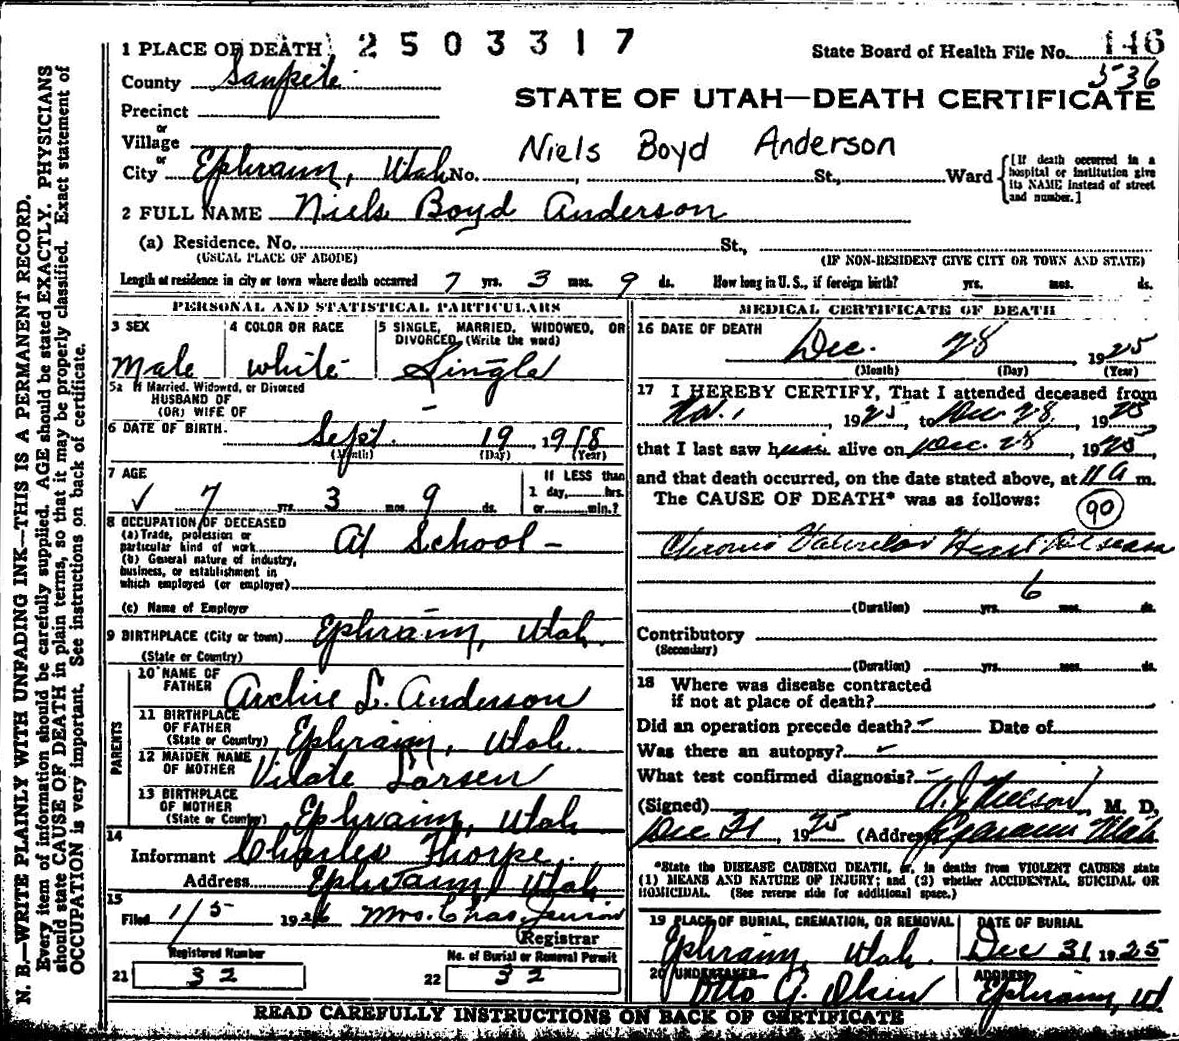 N. B.—WRITE PLAINLY WITH UNFADING INK—THIS IS A PERMANENT RECORD.
Every item of information should be carefully supplied. AGE should be stated EXACTLY. PHYSICIANS
should state CAUSE OF DEATH in plain terms, so that it may be properly classified. Exact statement of
OCCUPATION is very important. See instructions on back of certificate.
1 PLACE OF DEATH 2503317
State Board of Health File No. 146
536
County Sanpete
STATE OF UTAH—DEATH CERTIFICATE
Precinct
or
Village
Niels Boyd Anderson
or
City Ephraim, Utah No. St., Ward
[If death occurred in a
hospital or institution give
its NAME instead of street
and number.]
2 FULL NAME Niels Boyd Anderson
(a) Residence. No. St.,
(USUAL PLACE OF ABODE) (IF NON-RESIDENT GIVE CITY OR TOWN AND STATE)
Length of residence in city or town where death occurred 7 yrs. 3 mos. 9 ds. How long in U. S., if foreign birth? yrs. mos. ds.
PERSONAL AND STATISTICAL PARTICULARS
3 SEX
Male
4 COLOR OR RACE
White
5 SINGLE, MARRIED, WIDOWED, OR
DIVORCED, (Write the word)
Single
5a If Married, Widowed, or Divorced
HUSBAND OF
(OR) WIFE OF –
6 DATE OF BIRTH. Sept. 19, 1918
(Month) (Day) (Year)
7 AGE
IF LESS than
1 day, hrs.
or min.?
✓ 7 yrs. 3 mos. 9 ds.
8 OCCUPATION OF DECEASED
(a) Trade, profession or
particular kind of work At School –
(b) General nature of industry,
business, or establishment in
which employed (or employer)
(c) Name of Employer
9 BIRTHPLACE (City or town) Ephraim, Utah.
(State or Country)
PARENTS
10 NAME OF
FATHER Archie L. Anderson
11 BIRTHPLACE
OF FATHER
(State or Country) Ephraim, Utah.
12 MAIDEN NAME
OF MOTHER Vilate Larsen
13 BIRTHPLACE
OF MOTHER
(State or Country) Ephraim, Utah
14
Informant Charles Thorpe.
Address Ephraim, Utah
15
Filed 1/5 1926 Mrs. Chas. Jenson
Registrar
Registered Number
No. of Burial or Removal Permit
21 32
22 32
MEDICAL CERTIFICATE OF DEATH
16 DATE OF DEATH
Dec. 28, 1925
(Month) (Day) (Year)
17 I HEREBY CERTIFY, That I attended deceased from
Nov. 1, 1925, to Dec. 28, 1925
that I last saw him alive on Dec. 28, 1925,
and that death occurred, on the date stated above, at 11 a m.
The CAUSE OF DEATH* was as follows:
90
Chronic Valvular Heart Disease
6
(Duration) yrs. mos. ds.
Contributory
(Secondary)
(Duration) yrs. mos. ds.
18 Where was disease contracted
if not at place of death?
Did an operation precede death? – Date of
Was there an autopsy? –
What test confirmed diagnosis? –
(Signed) A. J. Nielson, M. D.
Dec 31, 1925 (Address) Ephraim Utah
*State the DISEASE CAUSING DEATH, or, in deaths from VIOLENT CAUSES state
(1) MEANS AND NATURE OF INJURY; and (2) whether ACCIDENTAL, SUICIDAL OR
HOMICIDAL. (See reverse side for additional space.)
19 PLACE OF BURIAL, CREMATION, OR REMOVAL
Ephraim, Utah.
DATE OF BURIAL
Dec 31 1925
20 UNDERTAKER
Otto A. Olsen
ADDRESS
Ephraim, Ut
READ CAREFULLY INSTRUCTIONS ON BACK OF CERTIFICATE